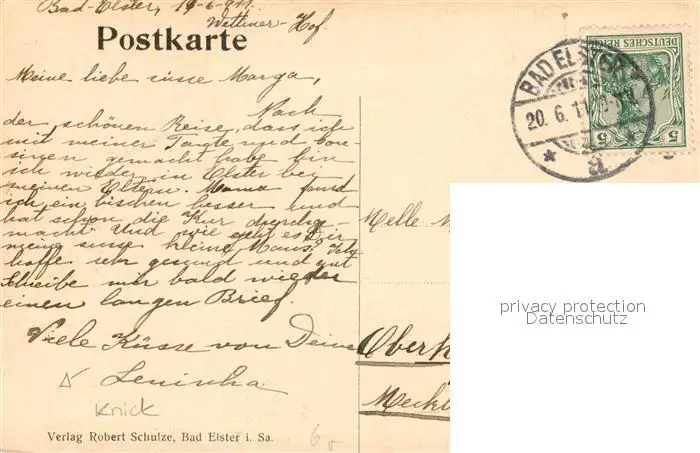 Bad-Elster, 19-6-911.
Wettiner-Hof.
Postkarte
Meine liebe süsse Marga,
Nach
der schönen Reise, dass ich
mit meiner Tante und
gemacht habe bin
ich wieder in Elster bei
meinen Eltern. Mama fand
ich ein bischen besser und
hat schon die Kur
macht. Und wie geht es Dir
meine süsse kleine Maus? Ich
hoffe sehr gesund und gut
schreibe mir bald wieder
einen langen Brief.
Viele Küsse von Deine
Leninha
Knick
Verlag Robert Schulze, Bad Elster i. Sa.
DEUTSCHES REICH
5 5
BAD ELSTER
20. 6. 11
* a *
Melle M
privacy protection
Datenschutz
Oberh
Meckl